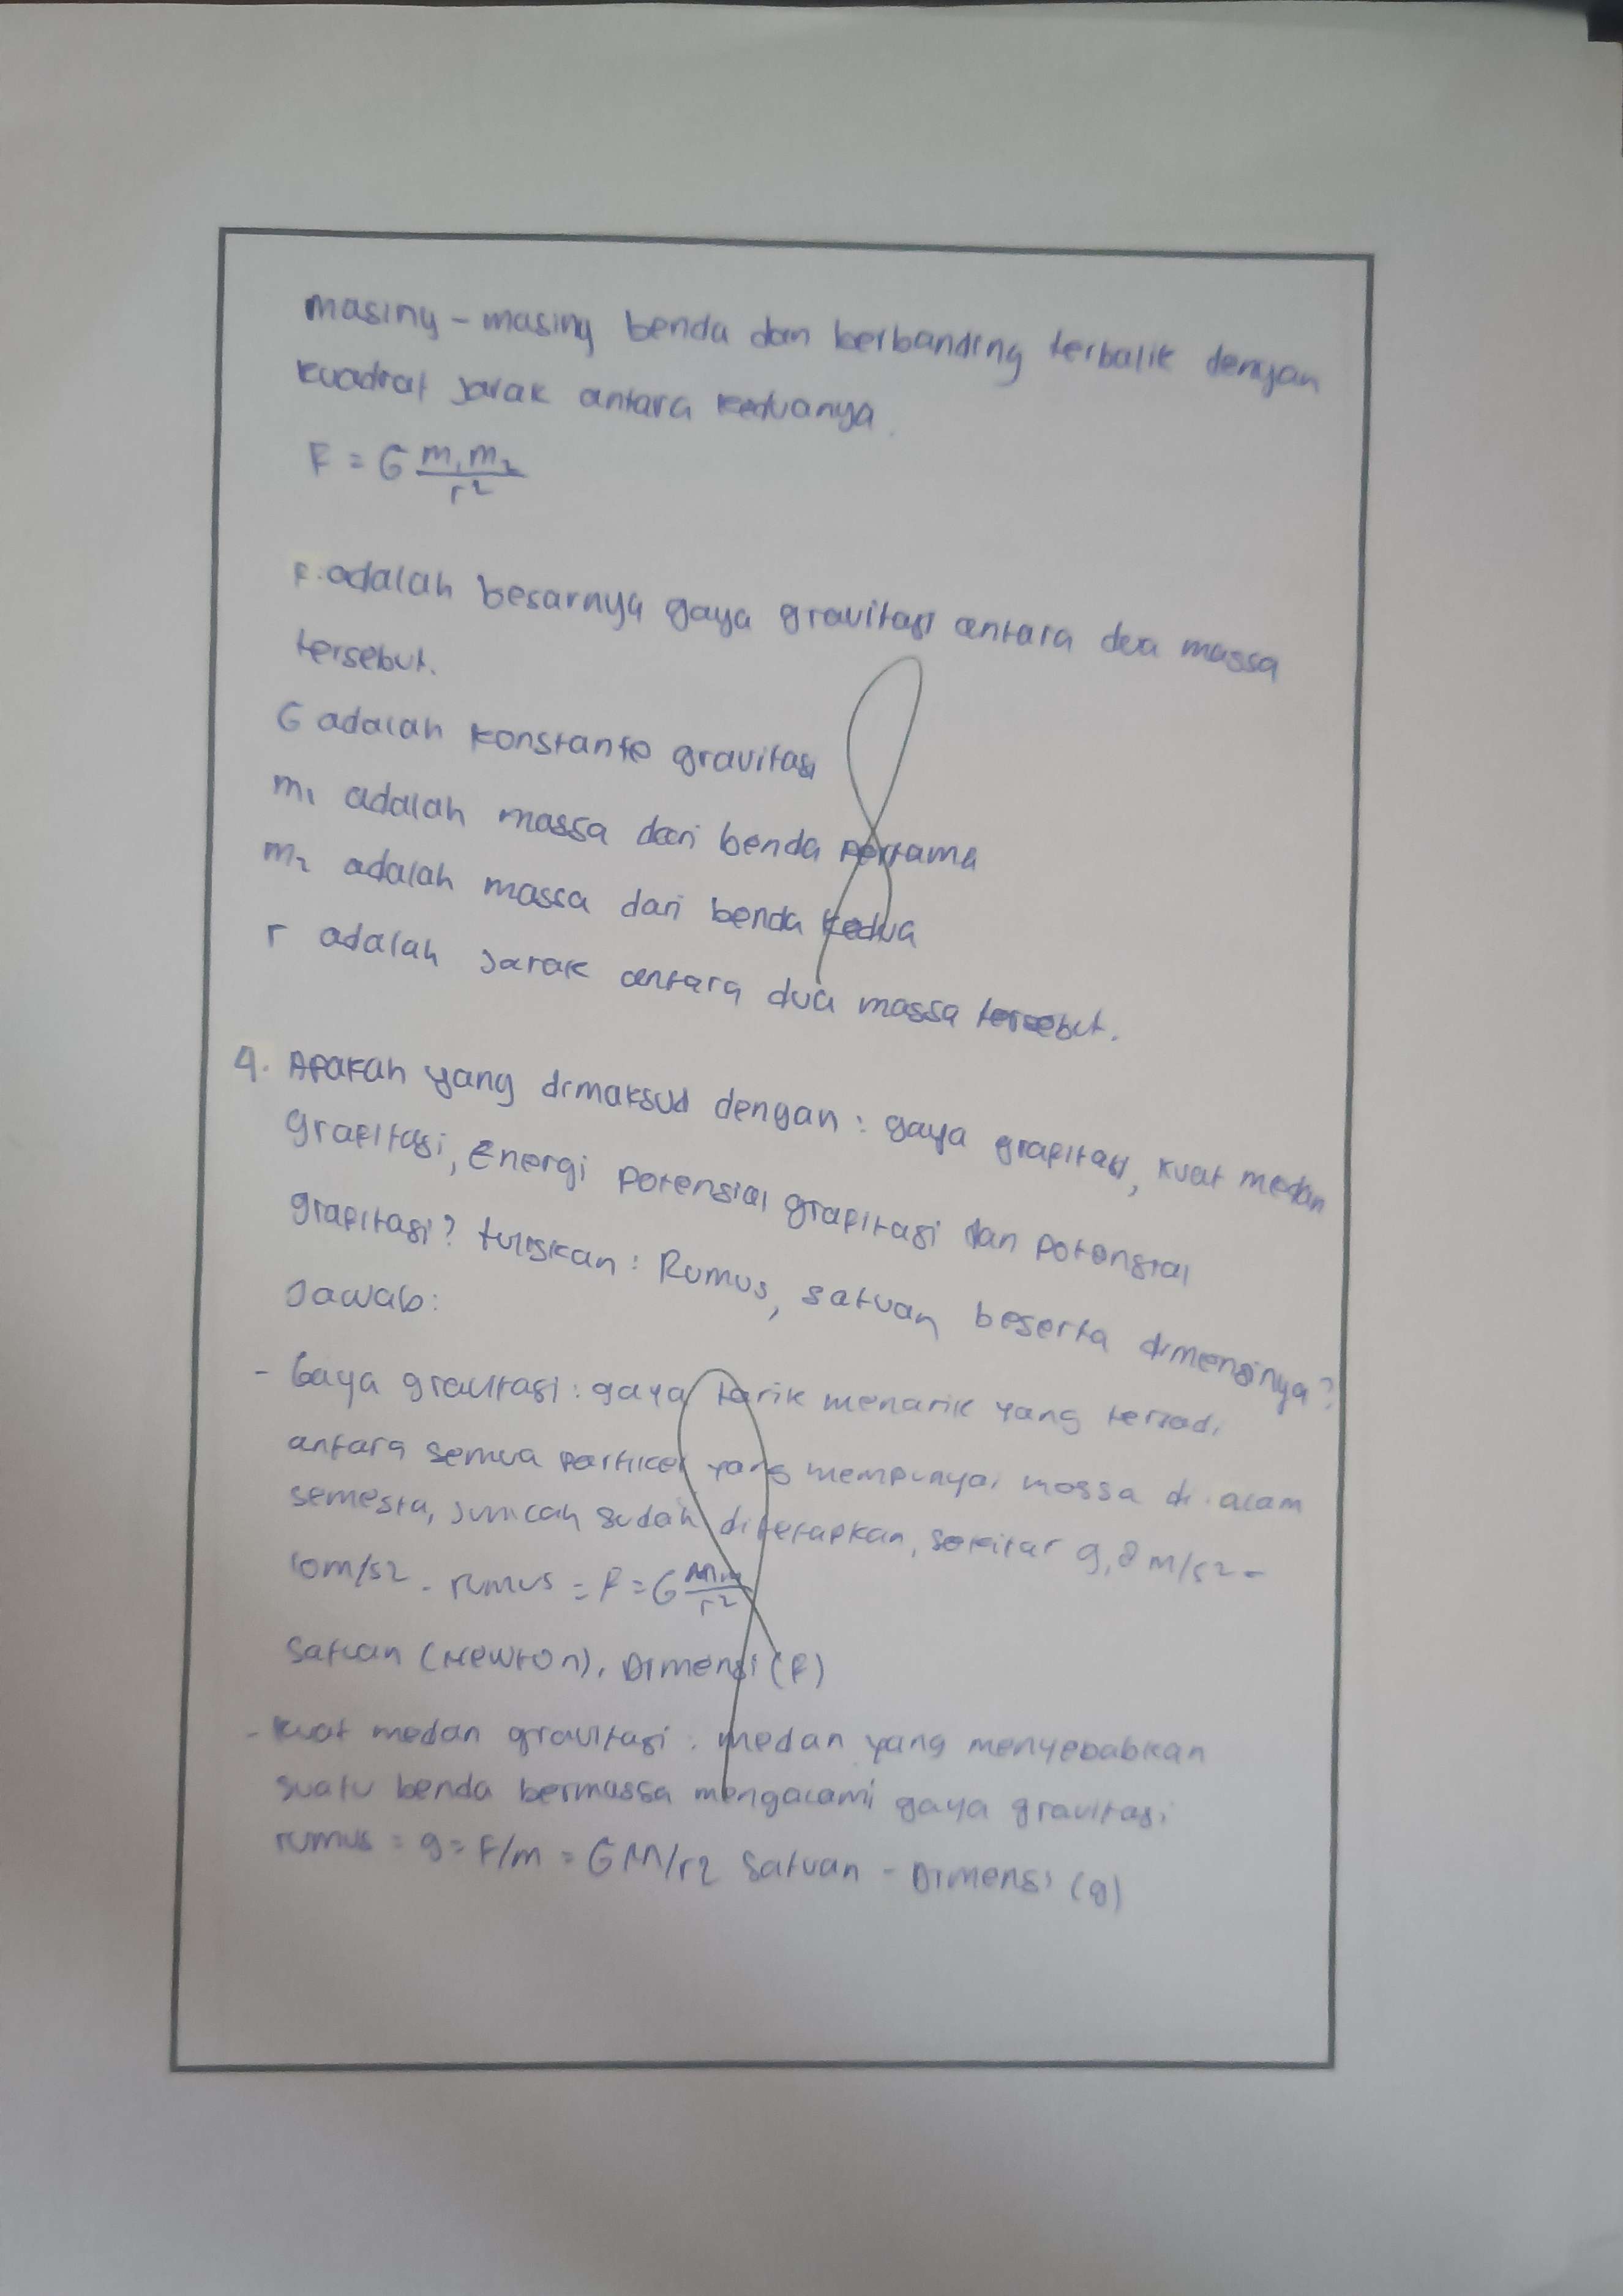 masing - masing benda dan berbanding terbalik dengan
kuadrat jarak antara keduanya.
F = G m₁ m₂ / r²
F. adalah besarnya gaya gravitasi antara dua massa
tersebut.
G adalah konstanta gravitasi
m₁ adalah massa dari benda pertama
m₂ adalah massa dari benda kedua
r adalah jarak antara dua massa tersebut.
4. Apakah yang dimaksud dengan : gaya grafitasi, kuat medan
grafitasi, Energi potensial grafitasi dan potensial
grafitasi? tuliskan : Rumus, satuan beserta dimensinya?
Jawab:
- Gaya gravitasi : gaya tarik menarik yang terjadi
antara semua partikel yang mempunyai massa di alam
semesta, jumlah sudah ditetapkan, sekitar 9,8 m/s2 -
10m/s2 - rumus = F = G Mm / r²
Satuan (Newton), Dimensi (F)
- Kuat medan gravitasi : medan yang menyebabkan
suatu benda bermassa mengalami gaya gravitasi
rumus = g = F/m = GM/r2 Satuan - Dimensi (g)